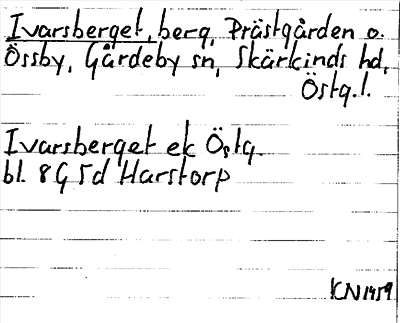 Ivarsberget, berg, Prästgården o.
Össby, Gårdeby sn, Skärkinds hd,
Östg.l.
Ivarsberget ek Östg.
bl. 8G 5d Harstorp
KN 1959